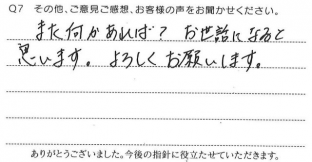 Q7 その他、ご意見ご感想、お客様の声をお聞かせください。
また何かあれば? お世話になると
思います。よろしくお願いします。
ありがとうございました。今後の指針に役立たせていただきます。